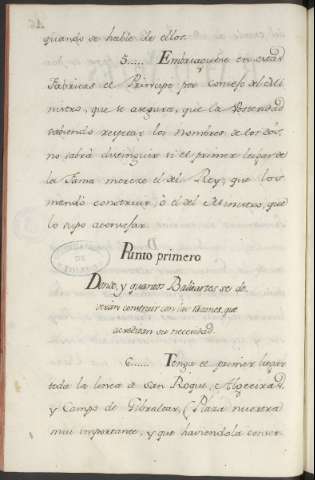 quando se hable de ellos.
5..... Embriaguese en estas
Fabricas el Principe, por Consejo del Mi-
nistro, que le asegura, que la Posteridad
sabiendo respetar los Nombres de los dos,
no sabrà distinguir si el primer lugar de
la Fama merece el del Rey, que los
mandò construir, ò el del Ministro, que
lo supo aconsejar.
Punto primero
Donde, y quantos Baluartes se de-
verán construir con las razones, que
acreditan su necesidad.
6..... Tenga el primer lugar
toda la linea de San Roque, Algeciras,
y Campo de Gibraltar, (Plaza nuestra
mui importante, y que haviendola conser-